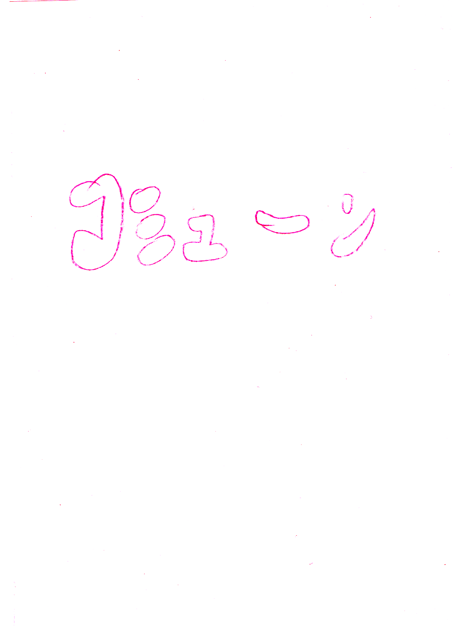 コミューン